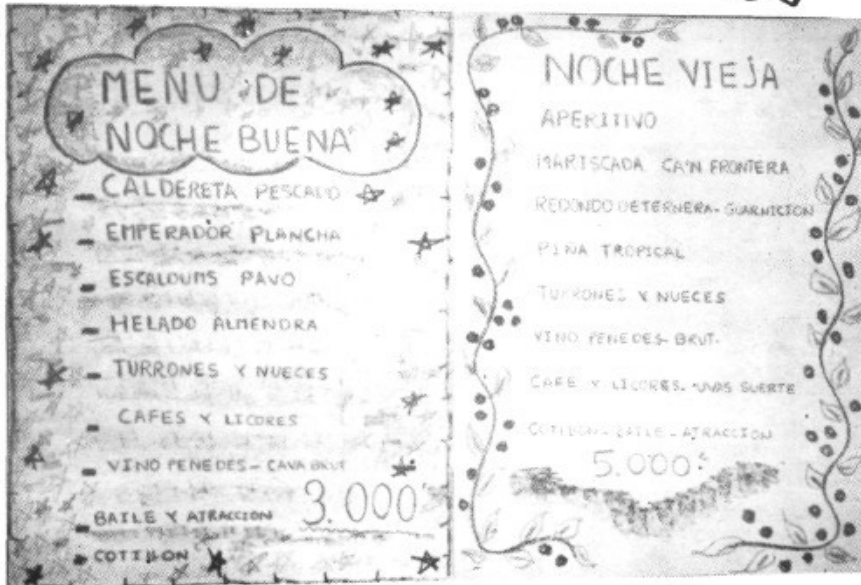 MENU DE
NOCHE BUENA
- CALDERETA PESCADO
- EMPERADOR PLANCHA
- ESCALDUMS PAVO
- HELADO ALMENDRA
- TURRONES Y NUECES
- CAFES Y LICORES
- VINO PENEDES - CAVA BRUT
3.000
- BAILE Y ATRACCION
- COTILLON
NOCHE VIEJA
APERITIVO
MARISCADA CA'N FRONTERA
REDONDO DE TERNERA - GUARNICION
PIÑA TROPICAL
TURRONES Y NUECES
VINO PENEDES - BRUT.
CAFE Y LICORES - UVAS SUERTE
COTILLON - BAILE - ATRACCION
5.000